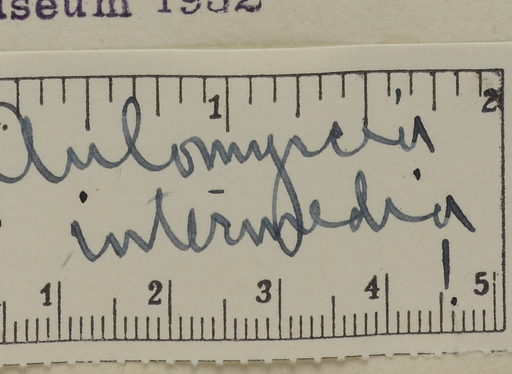 useum 1932
1 2
Aulomyrcia
intermedia
!
1 2 3 4 5